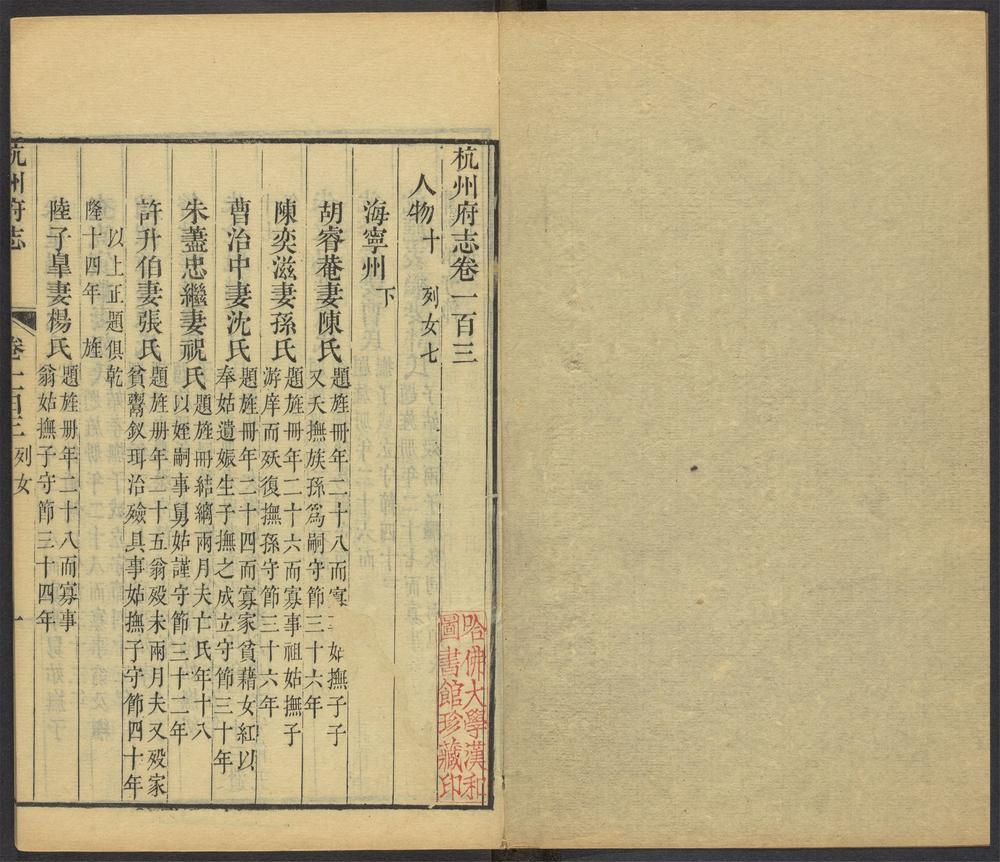 杭州府志卷一百三
人物十 列女七
海寧州下
胡睿菴妻陳氏 題旌冊年二十八而寡 姑撫子子
又夭撫族孫爲嗣守節三十六年
陳奕滋妻孫氏 題旌冊年二十六而寡事祖姑撫子
游庠而歿復撫孫守節三十六年
曹治中妻沈氏 題旌冊年二十四而寡家貧藉女紅以
奉姑遺娠生子撫之成立守節三十年
朱藎忠繼妻祝氏 題旌冊結縭兩月夫亡氏年十八
以姪嗣事舅姑謹守節三十二年
許升伯妻張氏 題旌册年二十五翁殁未兩月夫又殁家
貧鬻釵珥治殮具事姑撫子守節四十年
以上正題俱乾
隆十四年 旌
陸子皐妻楊氏 題旌册年二十八而寡事
翁姑撫子守節三十四年
杭州府志 卷一百三 列女 一
哈佛大學漢和
圖書館珍藏印